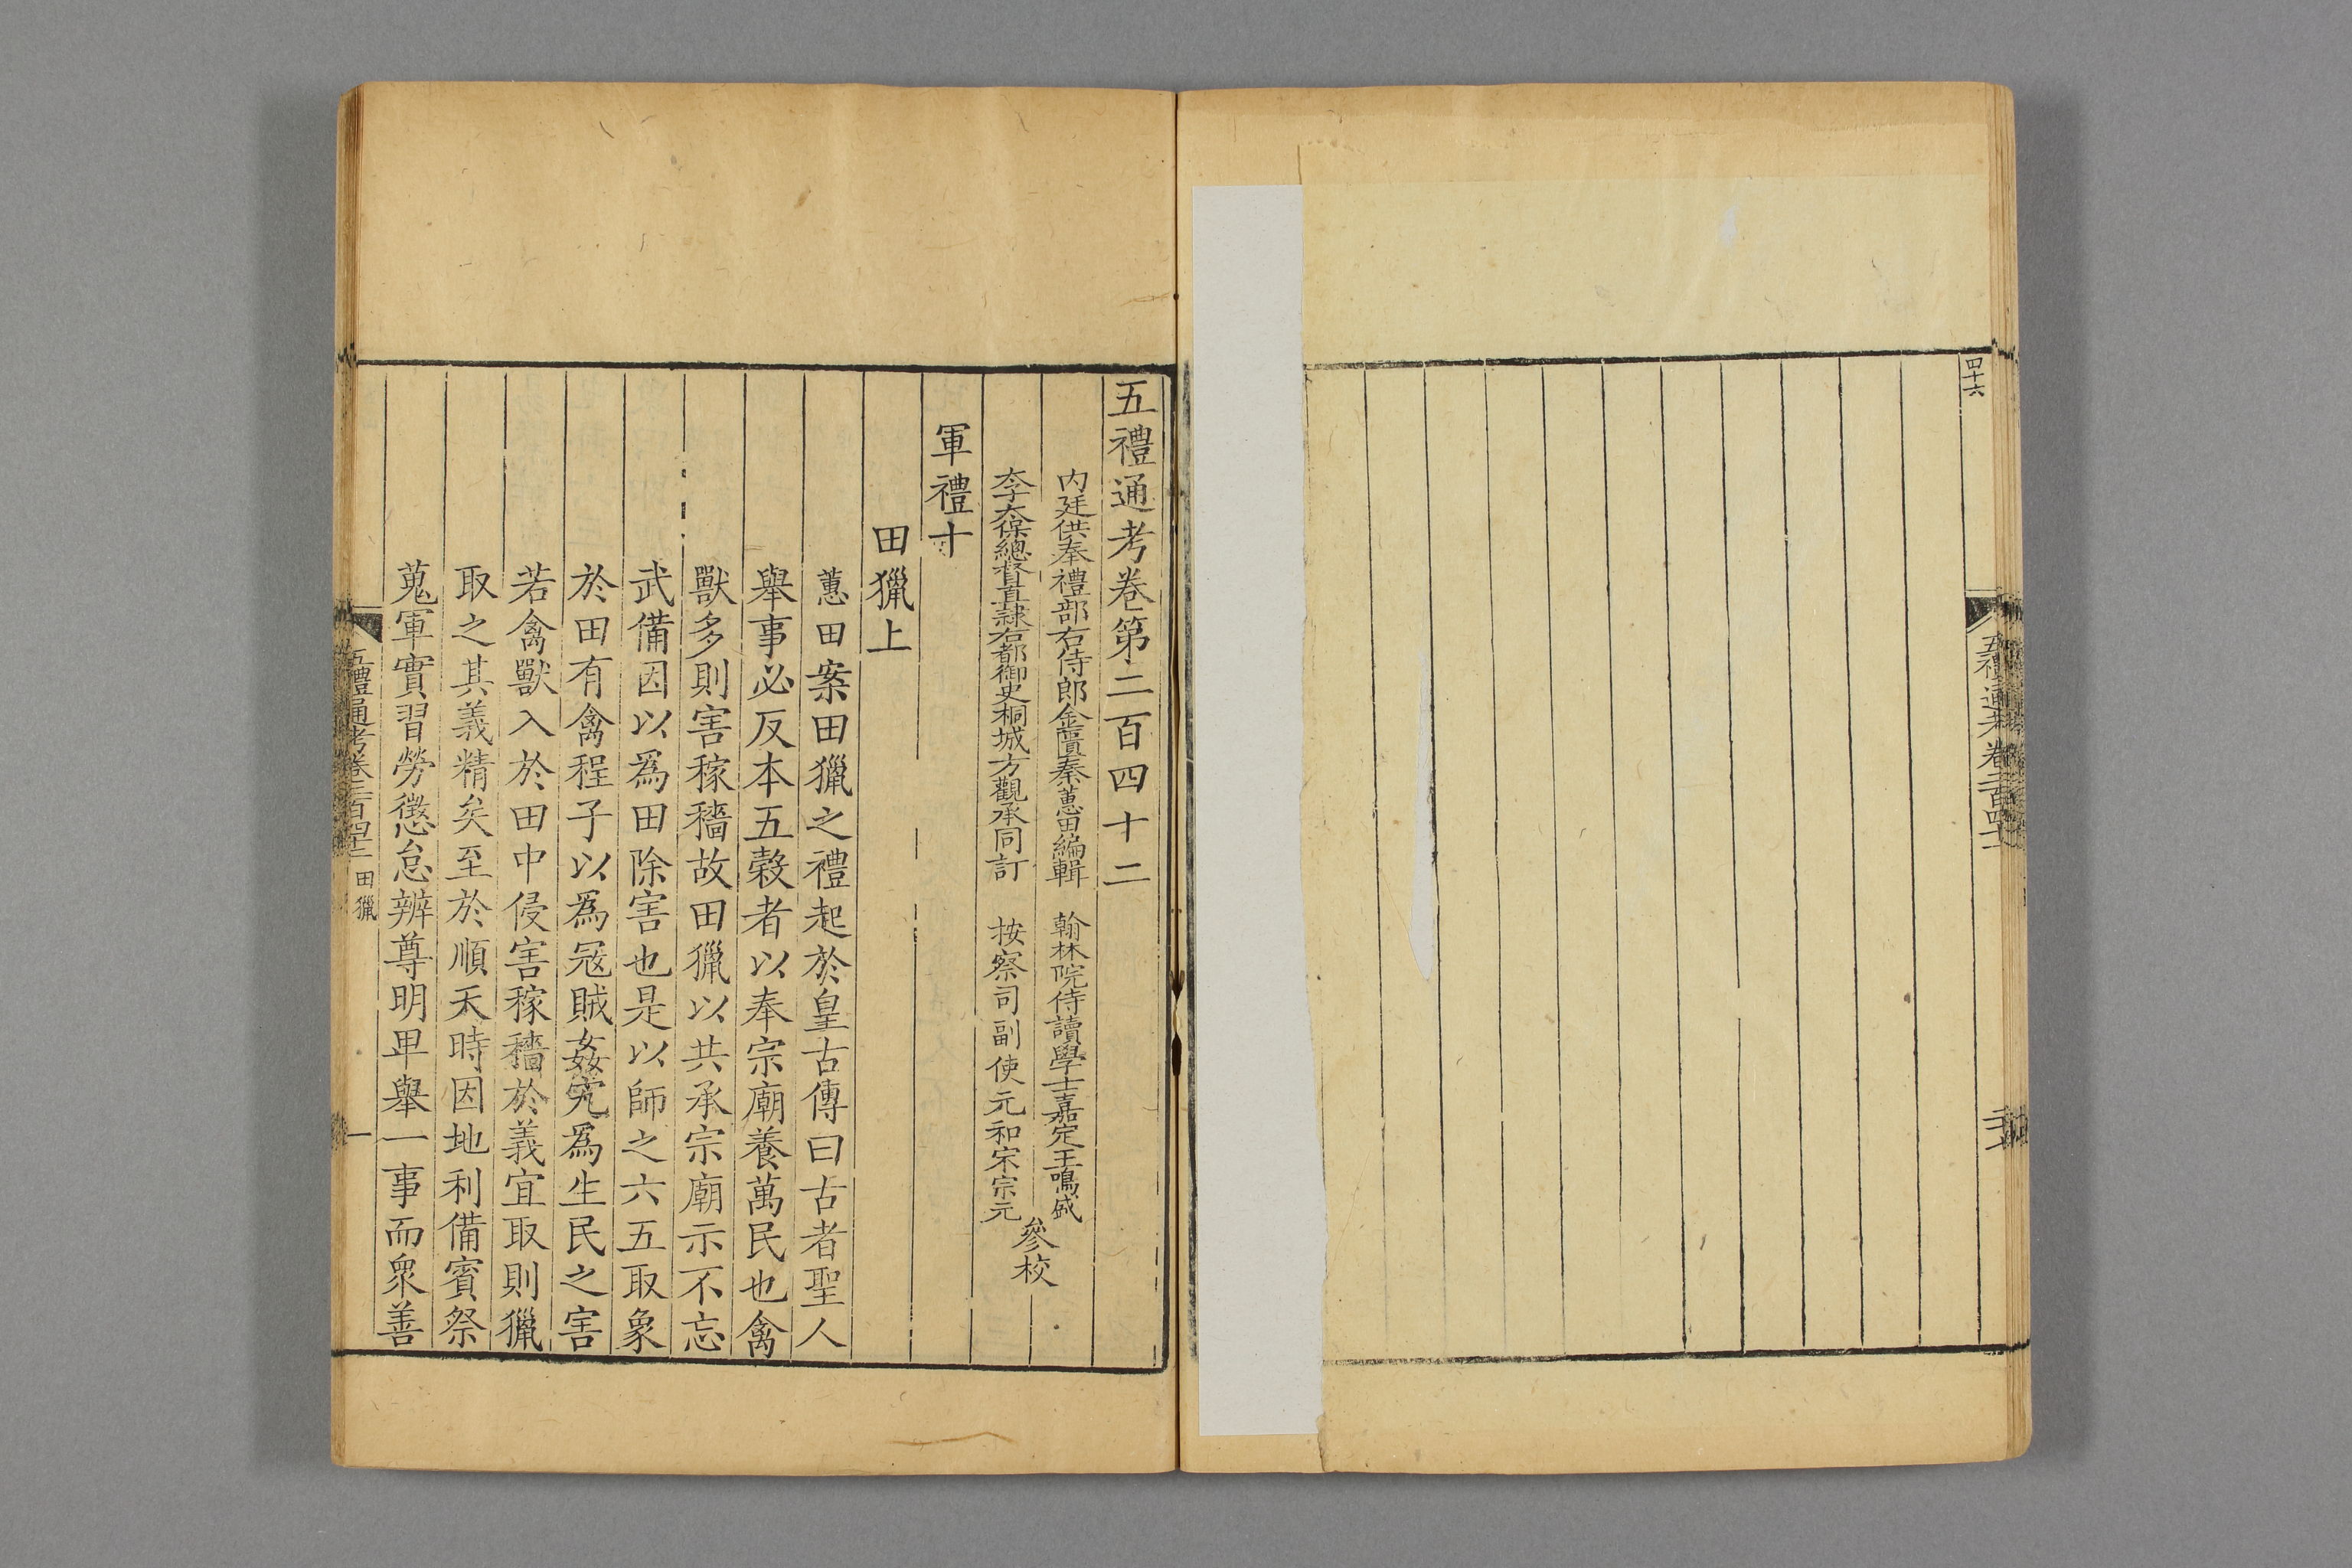 四十六
五禮通考卷二百四十一
五禮通考卷第二百四十二
内廷供奉禮部右侍郎金匱秦蕙田編輯 翰林院侍讀學士嘉定王鳴盛
太子太保總督直隸右都御史桐城方觀承同訂 按察司副使元和宋宗元
參校
軍禮十
田獵上
蕙田案田獵之禮起於皇古傳曰古者聖人
舉事必反本五穀者以奉宗廟養萬民也禽
獸多則害稼穡故田獵以共承宗廟示不忘
武備因以爲田除害也是以師之六五取象
於田有禽程子以爲冦賊姦宄爲生民之害
若禽獸入於田中侵害稼穡於義宜取則獵
取之其義精矣至於順天時因地利備賓祭
蒐軍實習勞懲怠辨尊明卑舉一事而衆善
五禮通考卷二百四十二 田獵
一